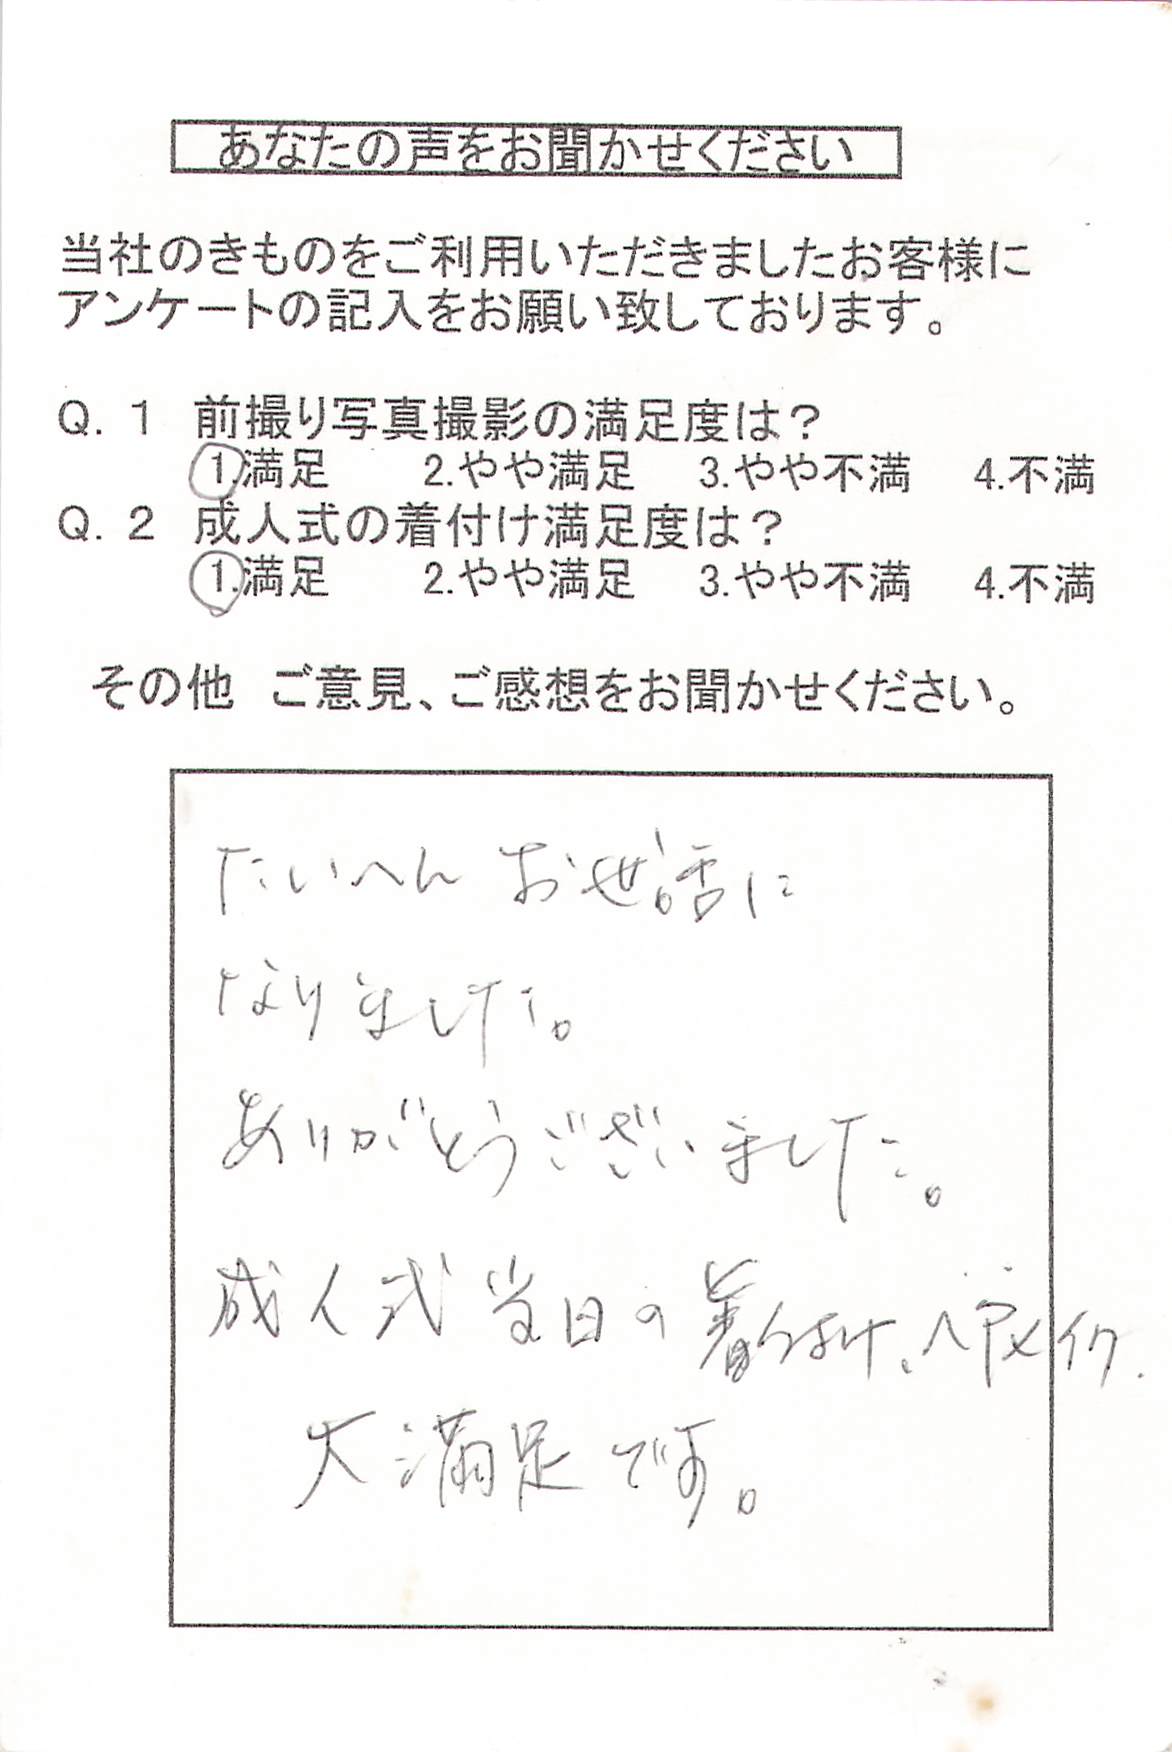 あなたの声をお聞かせください
当社のきものをご利用いただきましたお客様に
アンケートの記入をお願い致しております。
Q.1 前撮り写真撮影の満足度は？
1.満足 2.やや満足 3.やや不満 4.不満
Q.2 成人式の着付け満足度は？
1.満足 2.やや満足 3.やや不満 4.不満
その他 ご意見、ご感想をお聞かせください。
たいへん お世話に
なりました。
ありがとうございました。
成人式当日の着付け、ヘアメイク
大満足です。